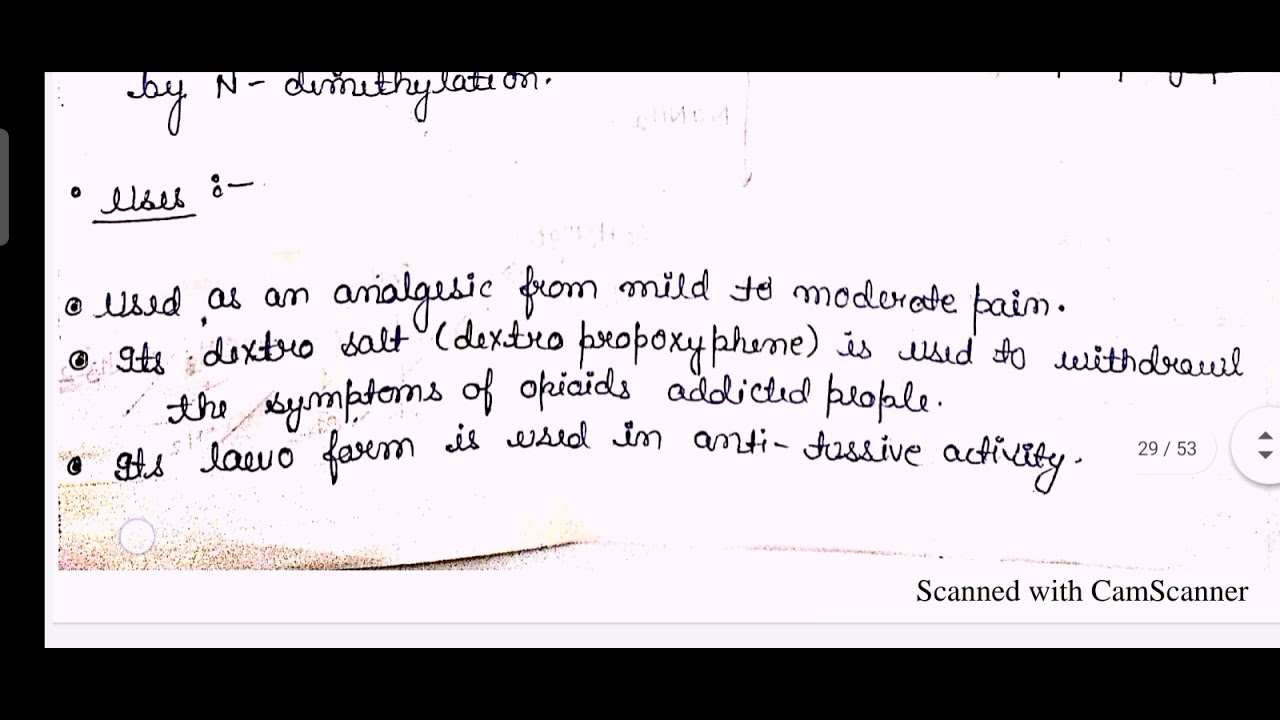 by N- dimethylation.
• Uses :-
• Used as an analgesic from mild to moderate pain.
• Its dextro salt (dextro propoxyphene) is used to withdrawl
the symptoms of opioids addicted people.
• Its laevo form is used in anti-tussive activity.
29 / 53
Scanned with CamScanner